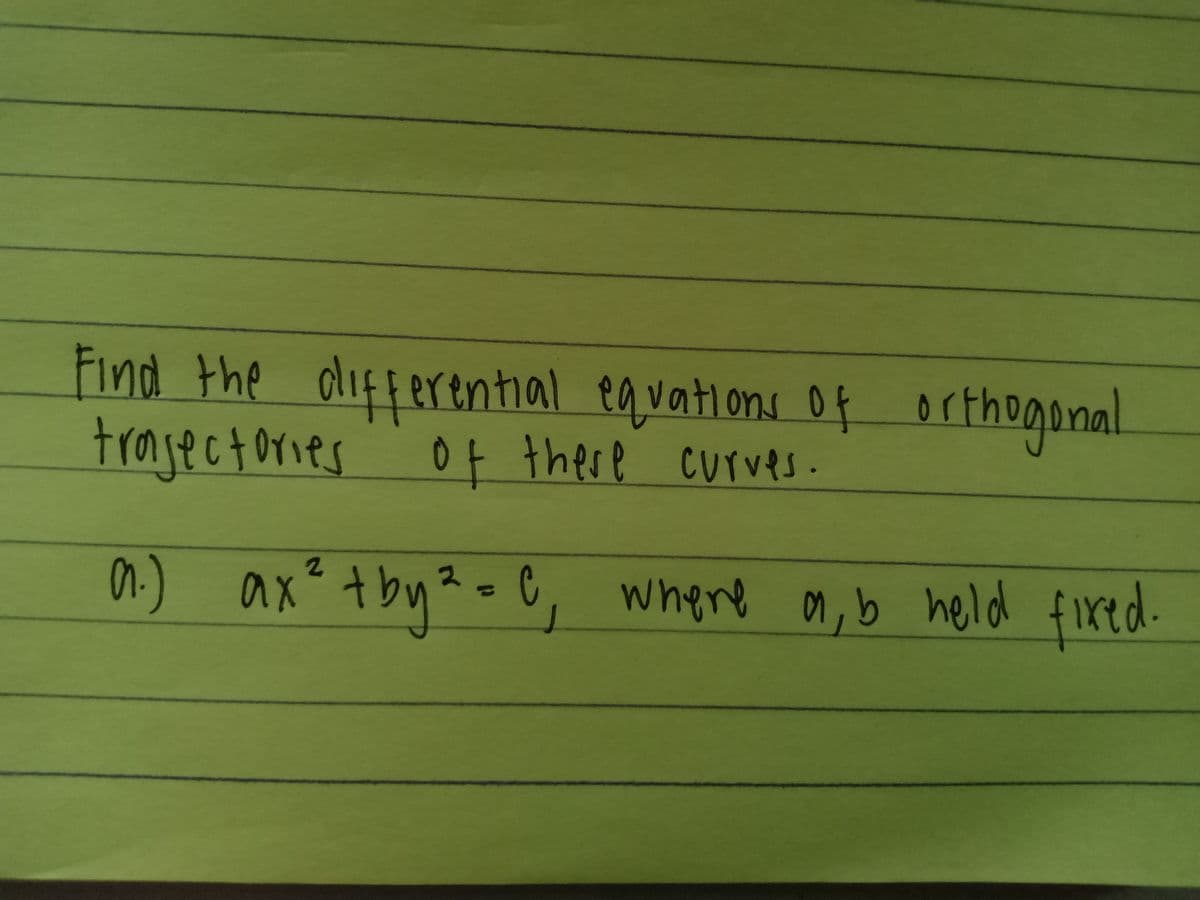 Find the differential equations of orthogonal
trajectories of these curves.
a.) ax² + by² = C, where a, b held fixed.